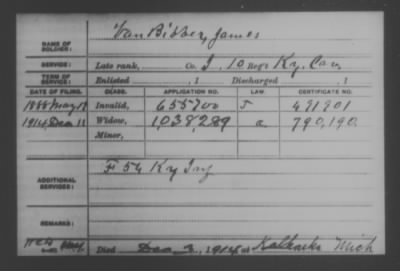 NAME OF SOLDIER: Van Bibber, James
SERVICE: Late rank, Co. I, 10 Reg't Ky. Cav.
TERM OF SERVICE: Enlisted , 1 Discharged , 1
DATE OF FILING. CLASS. APPLICATION NO. LAW. CERTIFICATE NO.
1888 May Invalid, 655700 J 491901
1914, Dec 11 Widow, 1,038,289 a 790,190.
Minor,
ADDITIONAL SERVICES: F 54 Ky Inf
REMARKS:
Died Dec 3, 1914, at Kalkaska Mich